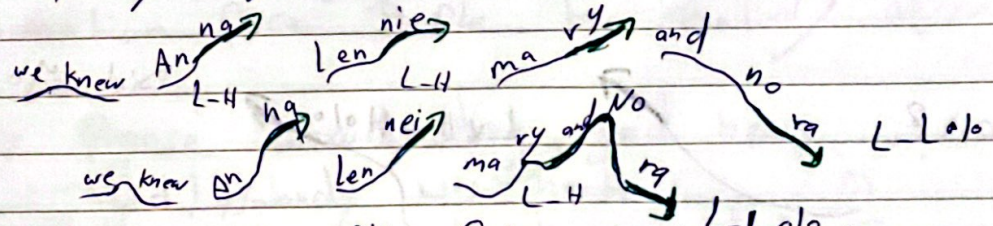 we knew An na Len nie ma ry and no ra
L-H L-H L-L%
we knew An na Len nei ma ry and No ra
L-H